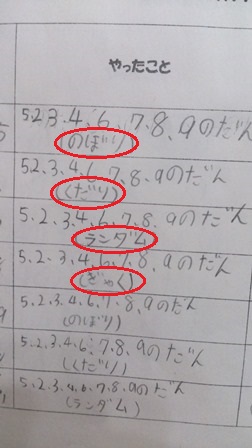 やったこと
5.2.3.4.6.7.8.9のだん
(のぼり)
5.2.3.4.6.7.8.9のだん
(くだり)
5.2.3.4.6.7.8.9のだん
ランダム
5.2.3.4.6.7.8.9のだん
(ぎゃく)
5.2.3.4.6.7.8.9のだん
(のぼり)
5.2.3.4.6.7.8.9のだん
(くだり)
5.2.3.4.6.7.8.9のだん
(ランダム)